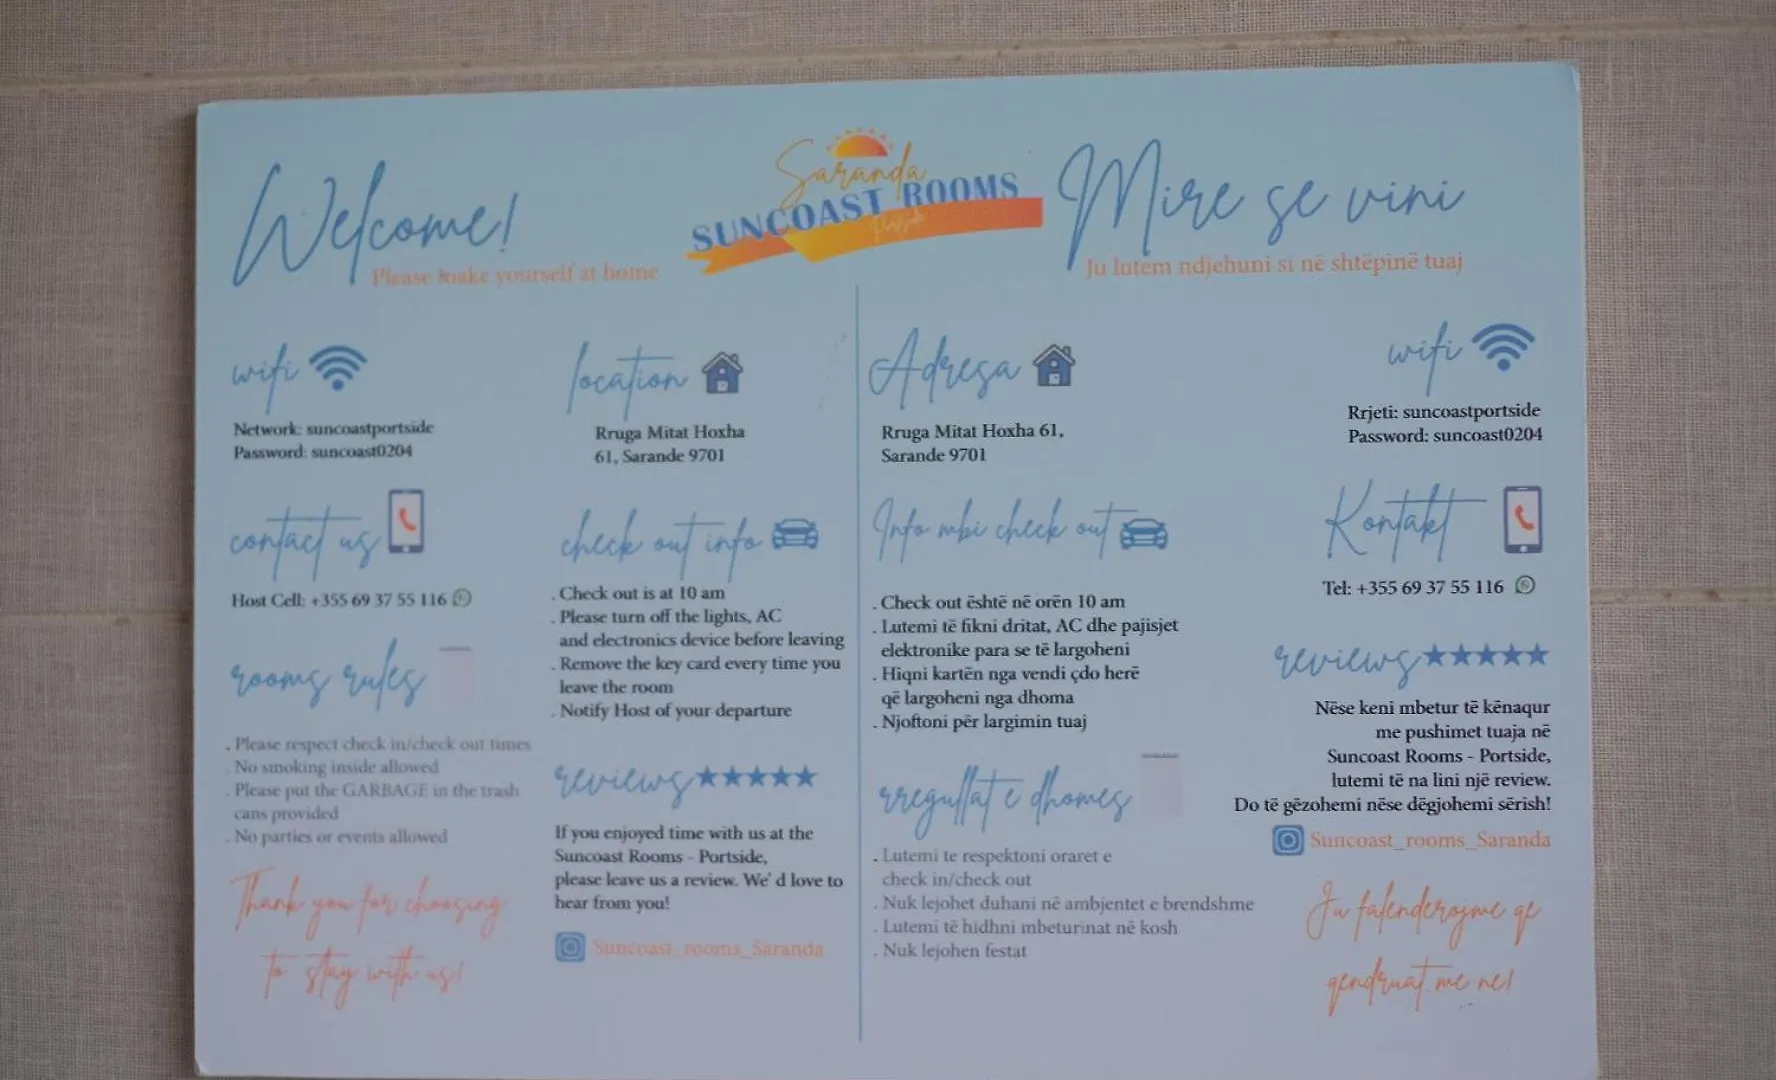 Saranda
SUNCOAST ROOMS
Welcome!
Please make yourself at home
wifi
Network: suncoastportside
Password: suncoast0204
location
Rruga Mitat Hoxha
61, Sarande 9701
contact us
Host Cell: +355 69 37 55 116
check out info
. Check out is at 10 am
. Please turn off the lights, AC
and electronics device before leaving
. Remove the key card every time you
leave the room
. Notify Host of your departure
rooms rules
. Please respect check in/check out times
. No smoking inside allowed
. Please put the GARBAGE in the trash
cans provided
. No parties or events allowed
reviews
If you enjoyed time with us at the
Suncoast Rooms - Portside,
please leave us a review. We' d love to
hear from you!
Suncoast_rooms_Saranda
Thank you for choosing
to stay with us!
Mire se vini
Ju lutem ndjehuni si në shtëpinë tuaj
Adresa
Rruga Mitat Hoxha 61,
Sarande 9701
wifi
Rrjeti: suncoastportside
Password: suncoast0204
Info mbi check out
. Check out është në orën 10 am
. Lutemi të fikni dritat, AC dhe pajisjet
elektronike para se të largoheni
. Hiqni kartën nga vendi çdo herë
që largoheni nga dhoma
. Njoftoni për largimin tuaj
Kontakt
Tel: +355 69 37 55 116
rregullat e dhomes
. Lutemi te respektoni oraret e
check in/check out
. Nuk lejohet duhani në ambjentet e brendshme
. Lutemi të hidhni mbeturinat në kosh
. Nuk lejohen festat
reviews
Nëse keni mbetur të kënaqur
me pushimet tuaja në
Suncoast Rooms - Portside,
lutemi të na lini një review.
Do të gëzohemi nëse dëgjohemi sërish!
Suncoast_rooms_Saranda
Ju falenderojme qe
qendruat me ne!